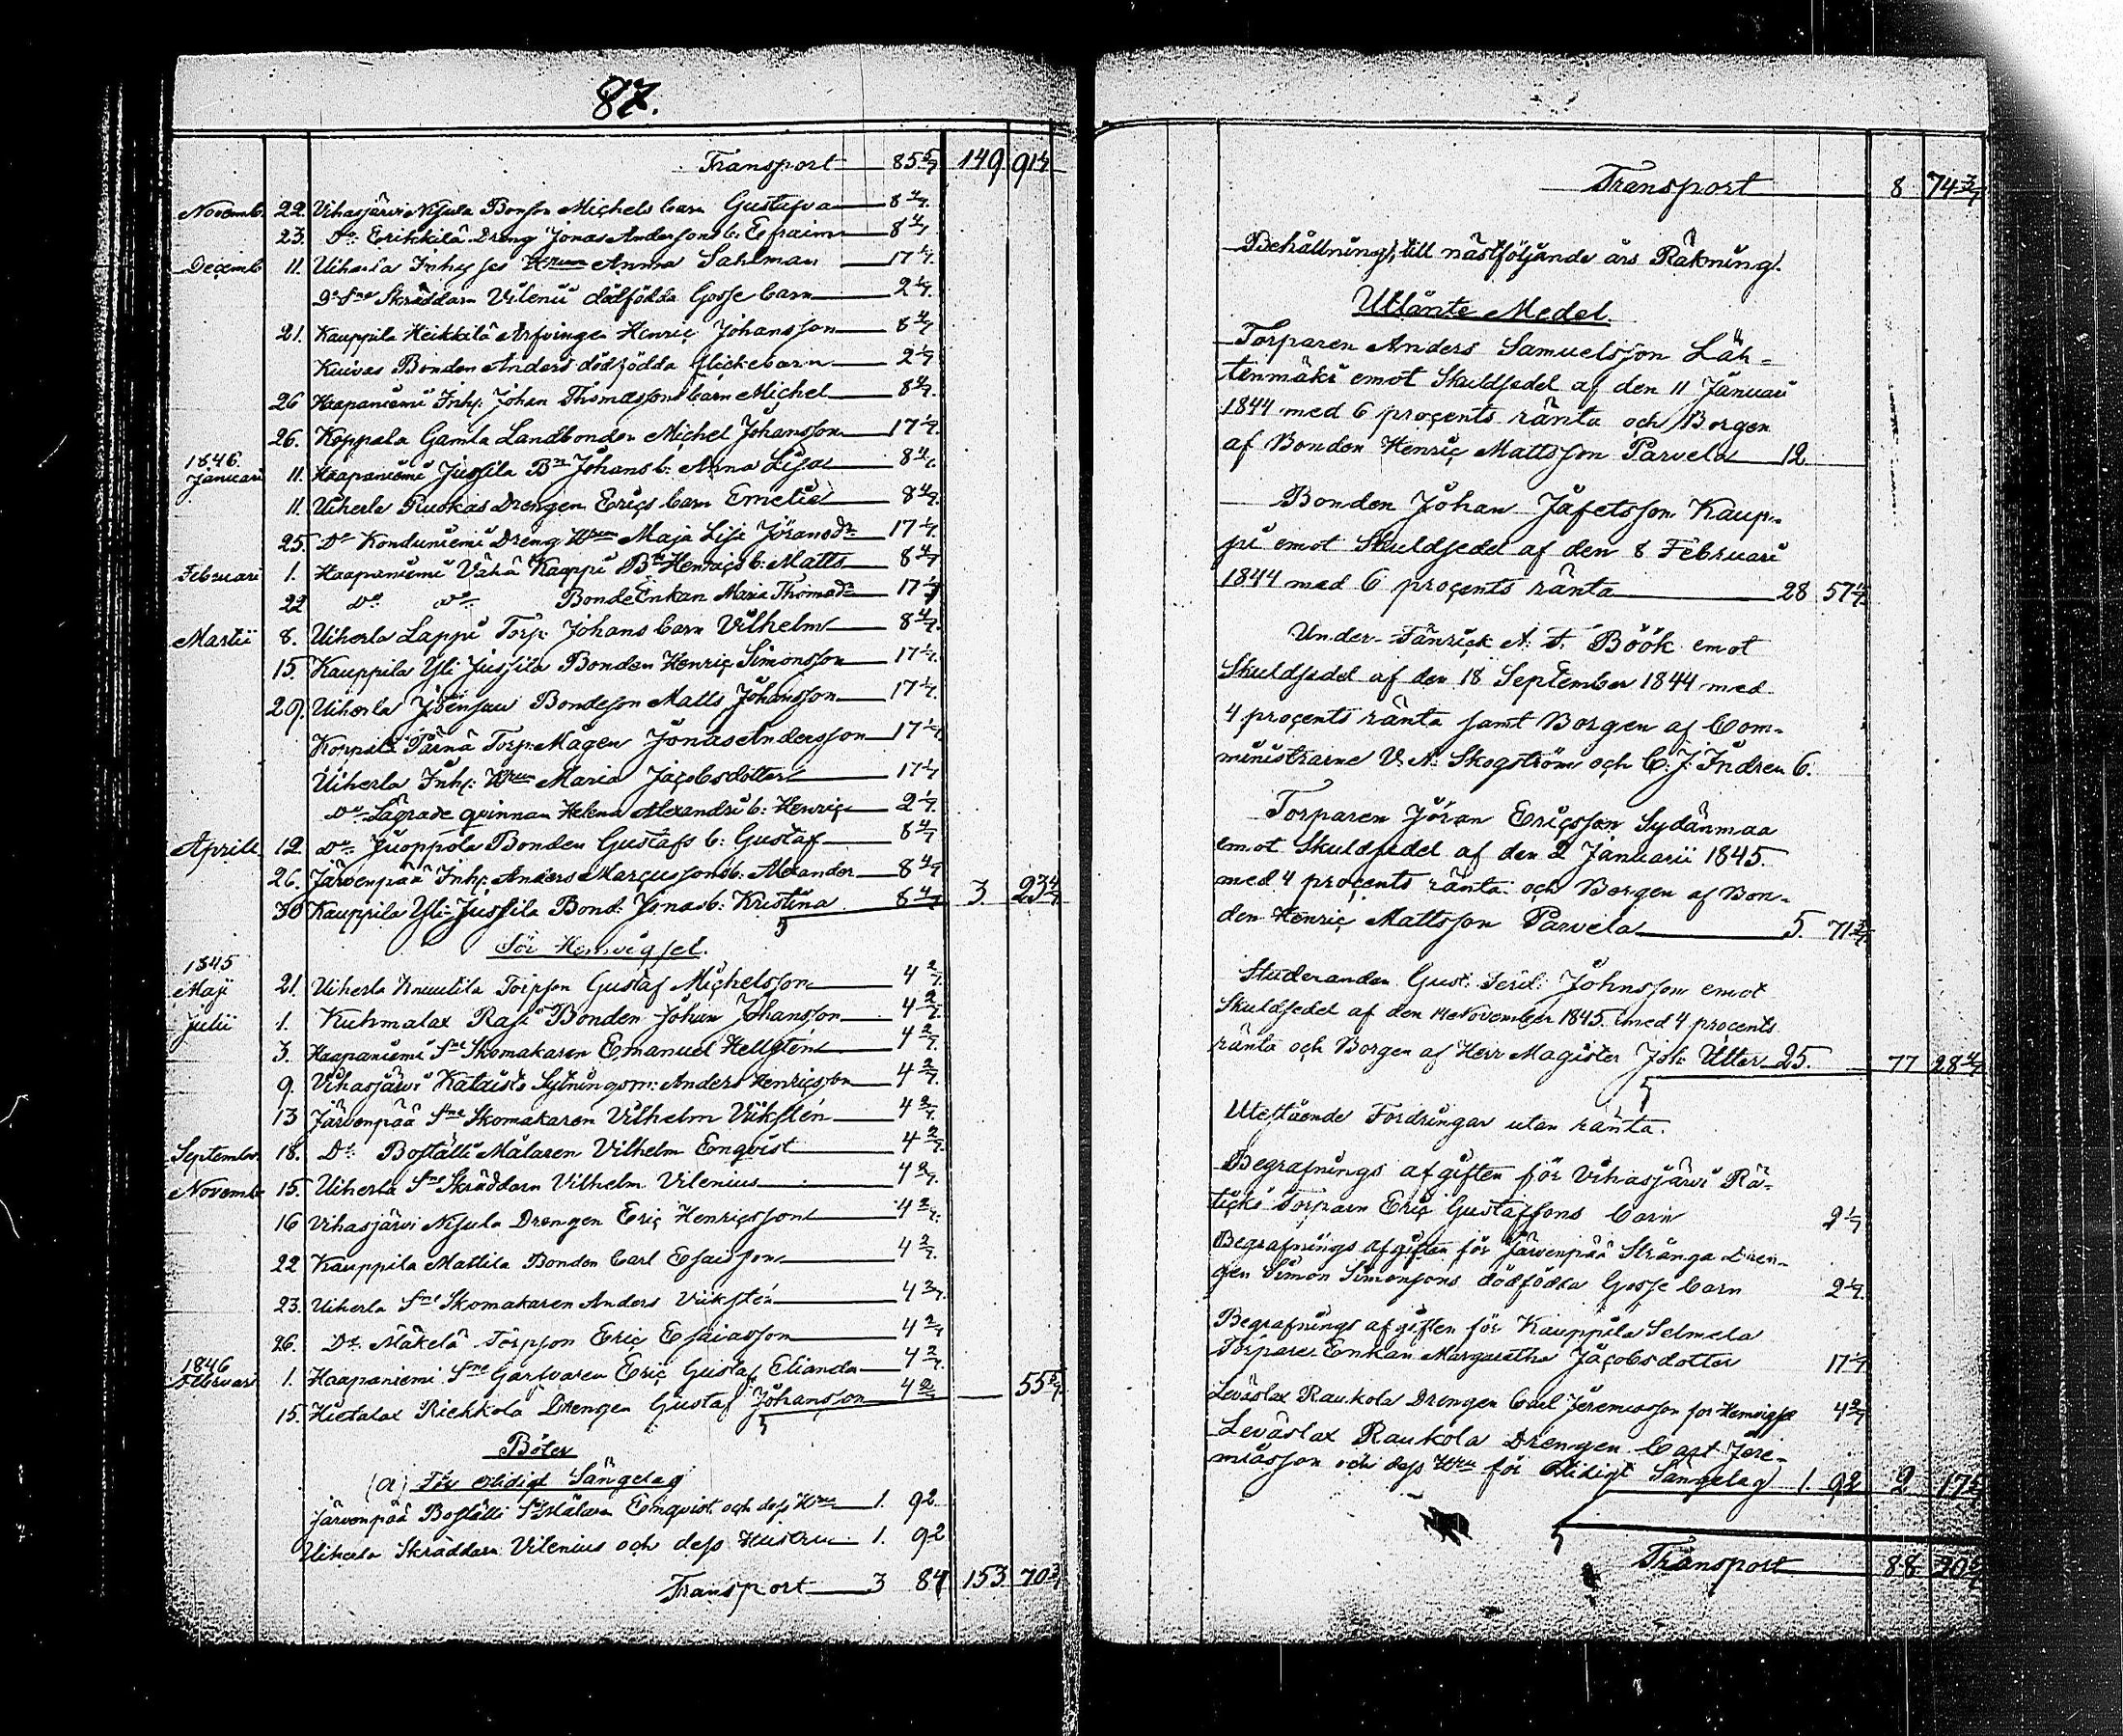 87.
Transport 85 5/7 149 91 4/7
Novemb. 22. Vihasjärvi Nisula Bonson Michels barn Gustafva 8 4/7.
23. Do Erikkilä Dreng Jonas Anderssons b. Efraim 8 4/7
Decemb. 11. Uiherla Inhyses Hrun Anna Sahlman 17 1/7.
Do Sne Skräddarn Vilenii dödfödda Gosse barn 2 1/7.
21. Kauppila Heikkilä Arfvingen Henric Johansson 8 4/7
Kuivas Bonden Anders dödfödda flickebarn 2 1/7
26 Haapaniemi Inh: Johan Thomassons barn Michel 8 4/7.
26. Koppala Gamla Landbonden Michel Johansson 17 1/7.
1846.
Januari 11. Haapaniemi Jussila Bn Johans b: Anna Lisa 8 4/7
11. Uiherla Ruokas Drengen Erics barn Emelie 8 4/7.
25. Do Konduniemi Dreng Hrun Maja Lisa Jöransdr 17 1/7.
Februari 1. Haapaniemi Vähä Kaappi Bn Henrics b: Matts 8 4/7
22 do do BondeEnkan Maria Thomadr 17 1/7
Martii 8. Uiherla Lappi Torp. Johans barn Vilhelm 8 4/7.
15. Kauppila Yli Jussila Bonden Henric Simonsson 17 1/7.
29. Uiherla Joensuu Bondeson Matts Johansson 17 1/7.
Koppala Pärnä Torp: Mågen Jonas Andersson 17 1/7
Uiherla Inh: Hrun Maria Jacobsdotter 17 1/7
do Lägrade qvinnan Helena Alexandri b: Henric 2 1/7.
Aprill 12. do Juoppola Bonden Gustafs b: Gustaf 8 4/7
26. Järvenpää Inh: Anders Marcussons b: Alexander 8 4/7
30 Kauppila Yli-Jussila Bond: Jonas b: Kristina 8 4/7 3 23 4/7
För Hemvigsel.
1845
Maji 21. Uiherla Knuutila Torpson Gustaf Michelsson 4 2/7.
Julii 1. Kuhmalax Rasi Bonden Johan Johansson 4 2/7.
3. Haapaniemi Sne Skomakaren Emanuel Hellstén 4 2/7.
9. Vihasjärvi Kataisto Sytningsm: Anders Henricsson 4 2/7.
13 Järvenpää Sne Skomakaren Vilhelm Vikstén 4 2/7.
Septembr. 18. Do Boställi Målaren Vilhelm Enqvist 4 2/7.
Novemb. 15. Uiherla Sne Skräddarn Vilhelm Vilenius 4 2/7.
16 Vihasjärvi Nisula Drengen Eric Henricsson 4 2/7.
22 Kauppila Mattila Bonden Carl Esaisson 4 2/7.
23. Uiherla Sne Skomakaren Anders Vikstén 4 2/7.
26. Do Mäkelä Torpson Eric Esaiasson 4 2/7
1846
Februari 1. Haapaniemi Sne Garfvaren Eric Gustaf Elianda 4 2/7.
15. Hietalax Riekkola Drengen Gustaf Johansson 4 2/7 55 5/7
Böter
(a) För otidigt Sängelag
Järvenpää Boställi Sne Målarn Enqvist och dess Hru 1. 92
Uiherla Skräddarn Vilenius och dess Hustru 1. 92
Transport 3 84 153 70 3/7
Transport 8 74 3/7
Behållning, till nästföljande års Räkning.
Utlånte Medel.
Torparen Anders Samuelsson Läh-
tenmäki emot Skuldsedel af den 11 Januari
1844 med 6 procents ränta och Borgen
af Bonden Henric Mattsson Parvela 12
Bonden Johan Jafetsson Kaup-
pi emot Skuldsedel af den 8 Februari
1844 med 6 procents ränta 28 57 1/7
Under-Fänrick A. F. Böök emot
Skuldsedel af den 18 September 1844 med
4 procents ränta samt Borgen af Com-
ministrarne V. A. Skogström och C. J. Indren 6.
Torparen Jöran Ericsson Sydänmaa
emot Skuldsedel af den 2 Januarii 1845.
med 4 procents ränta och Borgen af Bon-
den Henric Mattsson Parvela 5. 71 3/7
Studeranden Gust. Ferd. Johnsson emot
Skuldsedel af den 14 November 1845. med 4 procents
ränta och Borgen af Herr Magister Joh. Utter 25. 77 28 4/7
Utestående Fordringar utan ränta.
Begrafnings afgiften för Vihasjärvi Rä-
ticki Torparn Eric Gustafssons barn 2 1/7
Begrafnings afgiften för Järvenpää Stränga Dren-
gen Simon Simonsons dödfödda Gosse barn 2 1/7.
Begrafnings afgiften för Kauppila Selmela
Torpare Enkan Margaretha Jacobsdotter 17 1/7
Leväslax Raukola Drengen Carl Jeremiasson för Hemvigsel 4 2/7
Leväslax Raukola Drengen Carl Jere-
miasson och dess Hru för otidigt Sängelag 1. 92 2 17 5/7
Transport 88 20 5/7